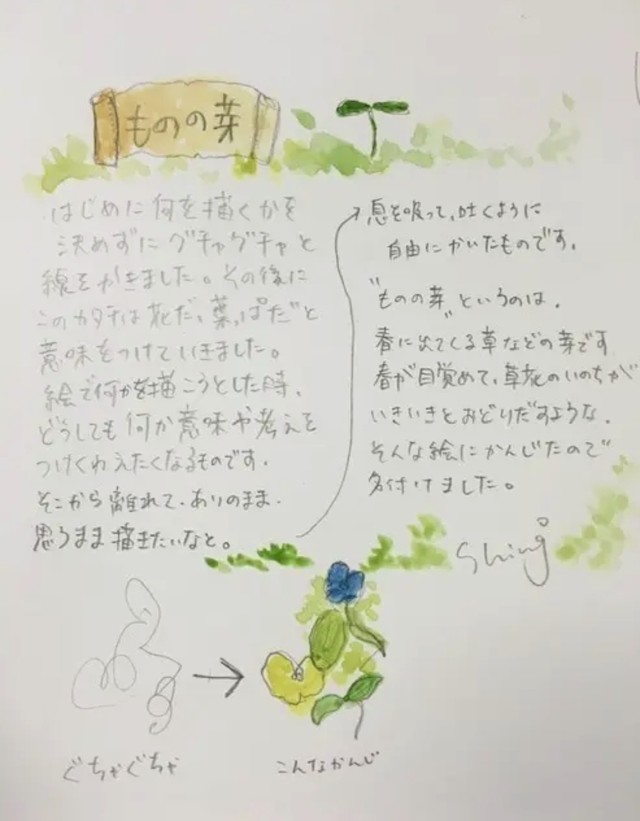 ものの芽
はじめに何を描くかを
決めずにグチャグチャと
線をかきました。その後に
このカタチは花だ、葉っぱだと
意味をつけていきました。
絵で何かを描こうとした時、
どうしても何か意味や考えを
つけくわえたくなるものです.
そこから離れて、ありのまま.
思うまま描きたいなと。
息を吸って、吐くように
自由にかいたものです.
"ものの芽"というのは.
春に出てくる草などの芽です
春が目覚めて、草花のいのちが
いきいきとおどりだすような.
そんな絵にかんじたので
名付けました。
Shinji
ぐちゃぐちゃ
こんなかんじ